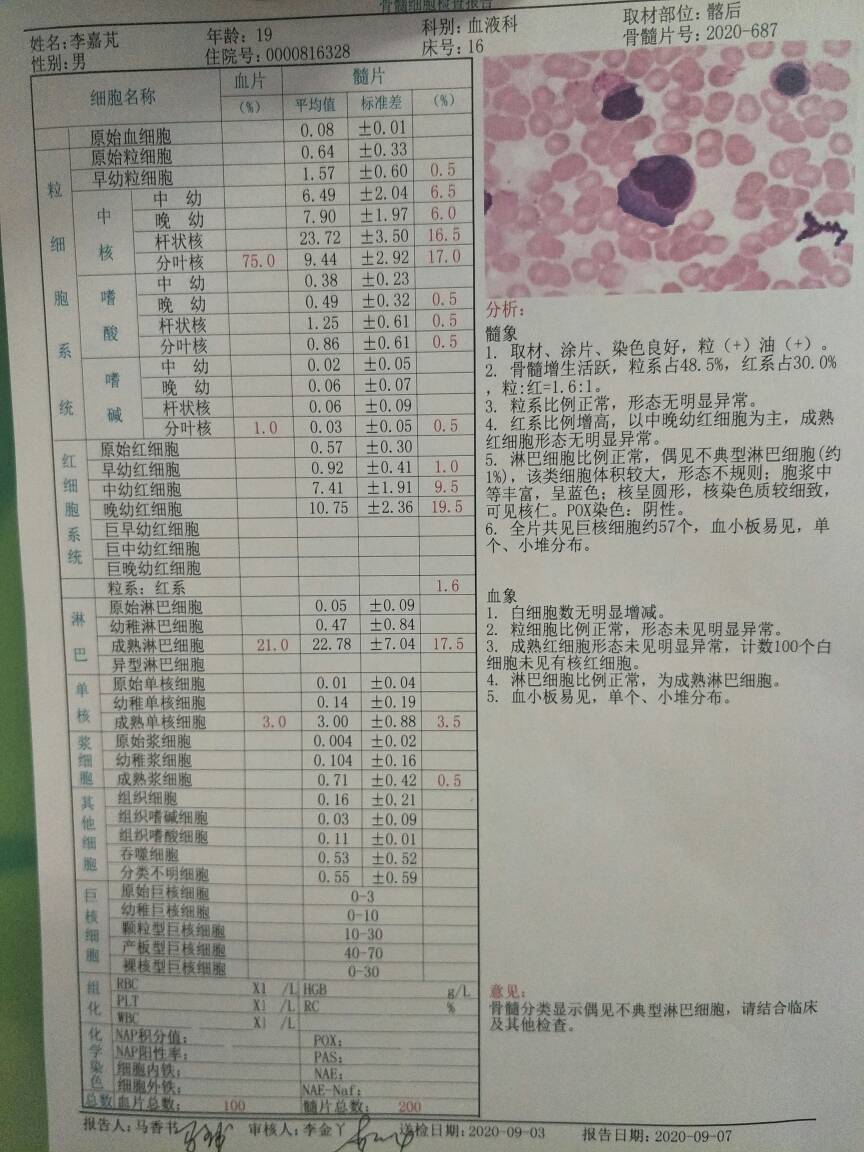 骨髓细胞检查报告
姓名:李嘉芃 年龄: 19 科别: 血液科 取材部位: 髂后
性别: 男 住院号: 0000816328 床号: 16 骨髓片号: 2020-687
细胞名称 血片 髓片
(%) 平均值 标准差 (%)
原始血细胞 0.08 ±0.01
粒细胞系统
原始粒细胞 0.64 ±0.33
早幼粒细胞 1.57 ±0.60 0.5
中核
中幼 6.49 ±2.04 6.5
晚幼 7.90 ±1.97 6.0
杆状核 23.72 ±3.50 16.5
分叶核 75.0 9.44 ±2.92 17.0
嗜酸
中幼 0.38 ±0.23
晚幼 0.49 ±0.32 0.5
杆状核 1.25 ±0.61 0.5
分叶核 0.86 ±0.61 0.5
嗜碱
中幼 0.02 ±0.05
晚幼 0.06 ±0.07
杆状核 0.06 ±0.09
分叶核 1.0 0.03 ±0.05 0.5
红细胞系统
原始红细胞 0.57 ±0.30
早幼红细胞 0.92 ±0.41 1.0
中幼红细胞 7.41 ±1.91 9.5
晚幼红细胞 10.75 ±2.36 19.5
巨早幼红细胞
巨中幼红细胞
巨晚幼红细胞
粒系: 红系 1.6
淋巴
原始淋巴细胞 0.05 ±0.09
幼稚淋巴细胞 0.47 ±0.84
成熟淋巴细胞 21.0 22.78 ±7.04 17.5
异型淋巴细胞
单核
原始单核细胞 0.01 ±0.04
幼稚单核细胞 0.14 ±0.19
成熟单核细胞 3.0 3.00 ±0.88 3.5
浆细胞
原始浆细胞 0.004 ±0.02
幼稚浆细胞 0.104 ±0.16
成熟浆细胞 0.71 ±0.42 0.5
其他细胞
组织细胞 0.16 ±0.21
组织嗜碱细胞 0.03 ±0.09
组织嗜酸细胞 0.11 ±0.01
吞噬细胞 0.53 ±0.52
分类不明细胞 0.55 ±0.59
巨核细胞
原始巨核细胞 0-3
幼稚巨核细胞 0-10
颗粒型巨核细胞 10-30
产板型巨核细胞 40-70
裸核型巨核细胞 0-30
组化
RBC X1 /L HGB g/L
PLT X1 /L RC %
WBC X1 /L
化学染色
NAP积分值: POX:
NAP阳性率: PAS:
细胞内铁: NAE:
细胞外铁: NAE-Naf:
总数 血片总数: 100 髓片总数: 200
分析:
髓象
1. 取材、涂片、染色良好，粒（+）油（+）。
2. 骨髓增生活跃，粒系占48.5%，红系占30.0%
，粒:红=1.6:1。
3. 粒系比例正常，形态无明显异常。
4. 红系比例增高，以中晚幼红细胞为主，成熟
红细胞形态无明显异常。
5. 淋巴细胞比例正常，偶见不典型淋巴细胞(约
1%)，该类细胞体积较大，形态不规则；胞浆中
等丰富，呈蓝色；核呈圆形，核染色质较细致，
可见核仁。POX染色: 阴性。
6. 全片共见巨核细胞约57个，血小板易见，单
个、小堆分布。
血象
1. 白细胞数无明显增减。
2. 粒细胞比例正常，形态未见明显异常。
3. 成熟红细胞形态未见明显异常，计数100个白
细胞未见有核红细胞。
4. 淋巴细胞比例正常，为成熟淋巴细胞。
5. 血小板易见，单个、小堆分布。
意见:
骨髓分类显示偶见不典型淋巴细胞，请结合临床
及其他检查。
报告人: 马香书 审核人: 李金丫 送检日期: 2020-09-03 报告日期: 2020-09-07